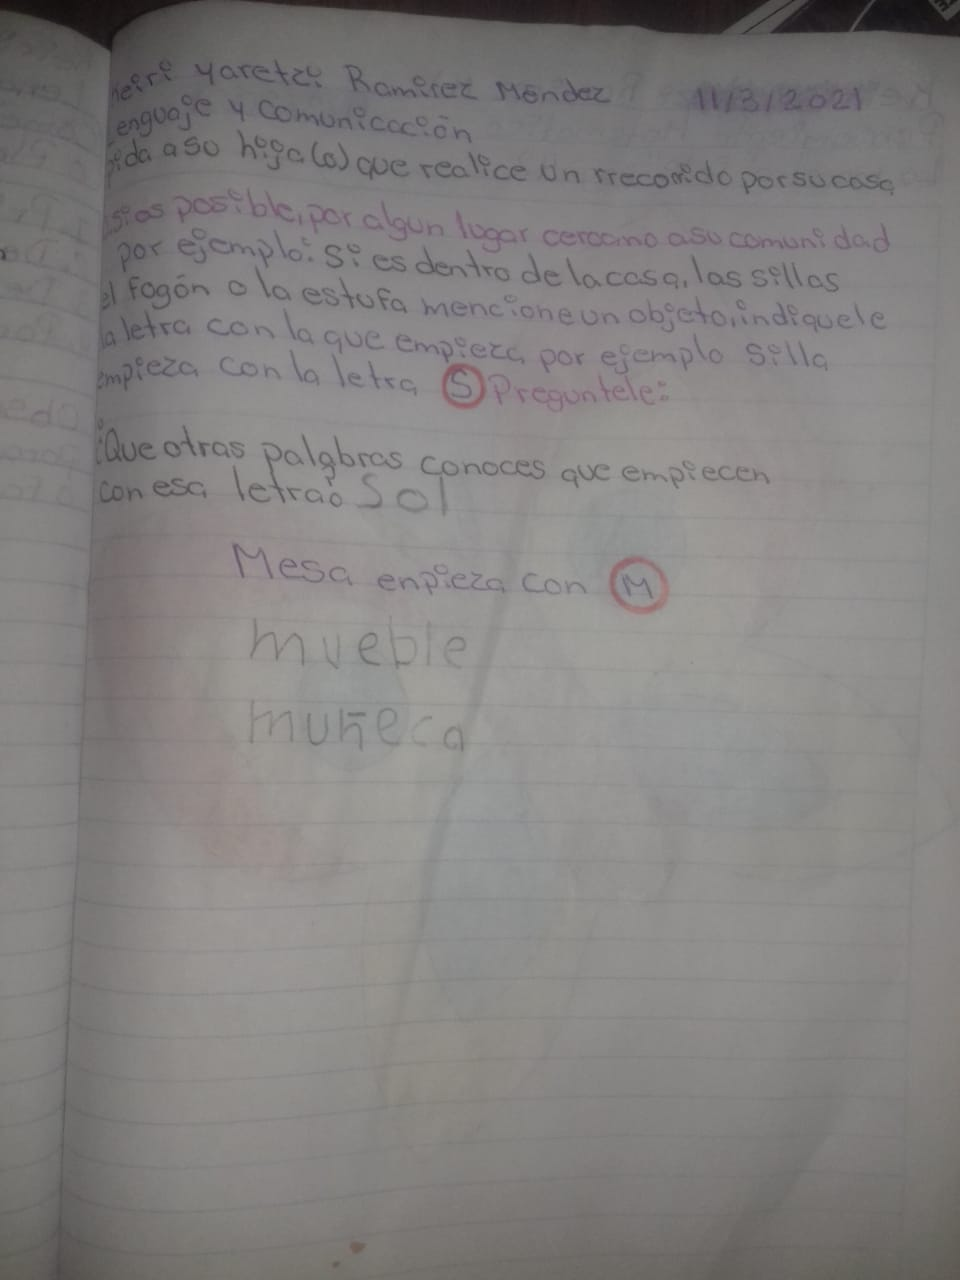 heiri Yaretzi Ramirez Méndez 11/3/2021
enguaje y comunicación
pida a so higa(o) que realice un rrecorrido por su casa
si as posible, por algun lugar cercamo a su comunidad
por ejemplo: si es dentro de la casa, las sillas
el fogón o la estufa mencione un objeto, indiquele
la letra con la que empieza, por ejemplo silla
empieza con la letra S Preguntele:
¿Que otras palabras conoces que empiecen
con esa letra? Sol
Mesa enpieza con M
mueble
muñeca